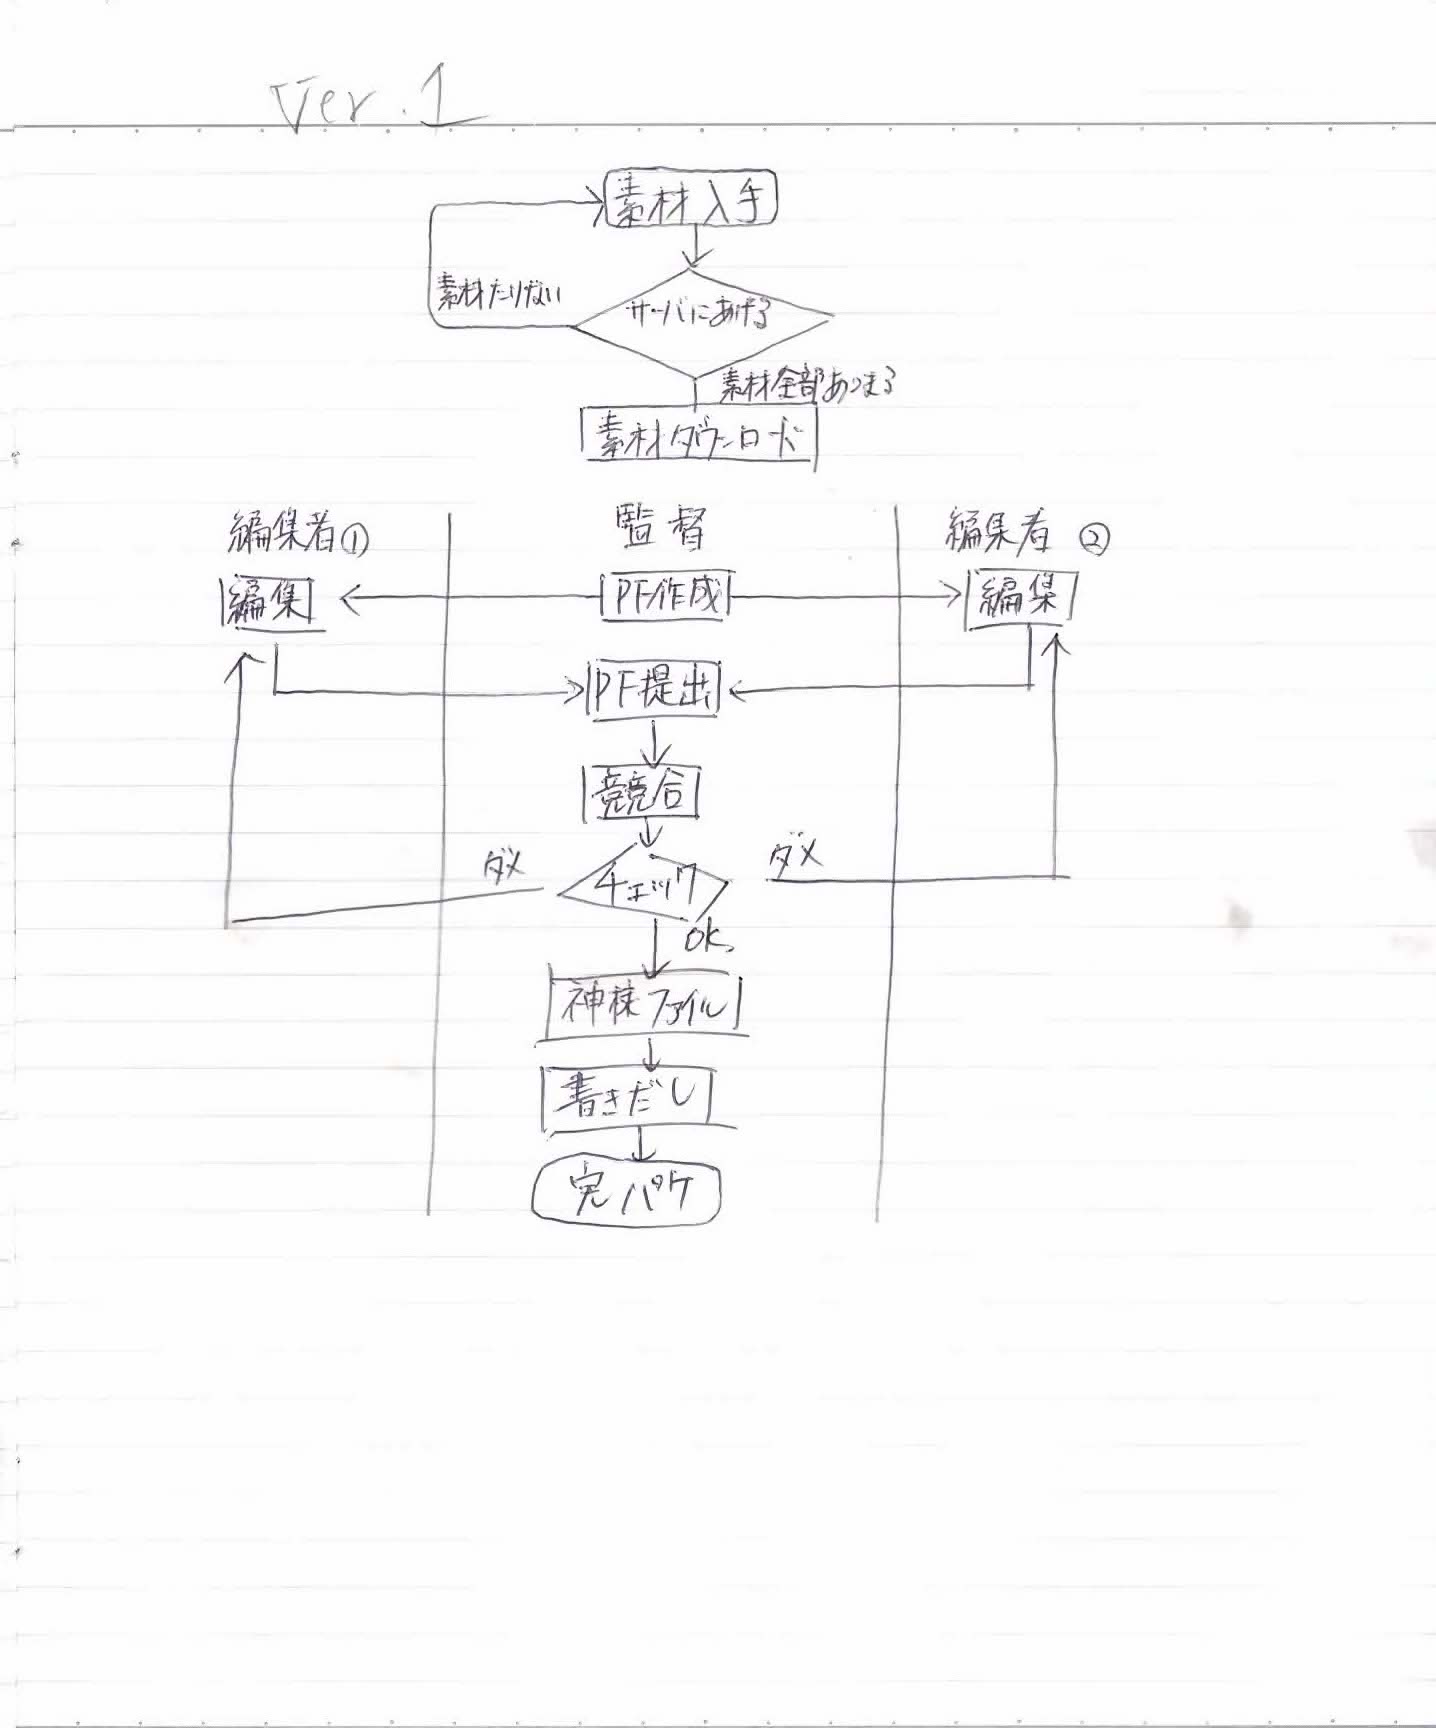 Ver.1
素材入手
素材たりない
サーバにあげる
素材全部あつまる
素材ダウンロード
編集者①
監督
編集者②
編集
PF作成
編集
PF提出
競合
ダメ
チェック
ダメ
OK
神様ファイル
書きだし
完パケ